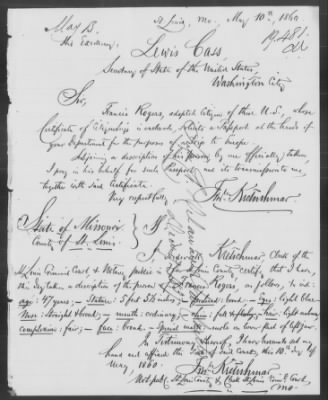 May 13.
St. Louis, Mo. May 10th, 1860
19.481
His Excellency,
Lewis Cass,
Secretary of State of the United States,
Washington City
Sir,
Francis Rogers, adopted Citizen of these U.S., whose
Certificate of Citizenship is enclosed, solicits a Passport at the hands of
your Department for the purposes of voyage to Europe.
Adjoining a description of his person by me officially taken
I pray in his behalf for such Passport and its transmission to me,
together with said Certificate.
Very respectfully,
Kretschmar.
State of Missouri
County of St. Louis
I, Kretschmar, Clerk of the
St. Louis Criminal Court & Notary public in St. Louis County, certify, that I have,
this day taken a description of the person of Francis Rogers, as follows, to wit:
age: 47 years; Stature: 5 feet inches; forehead: broad; Eyes: light blue
Nose: Straight & broad; mouth: ordinary; Chin: hair: light auburn
complexion: fair; face: broad. Special mark:
In Testimony whereof, I have hereunto set my
hand and affixed the Seal of said Court, this 10th day of
May, 1860.
Kretschmar
Not. publ. St. Louis County & Clerk St. Louis Crim'l Court,
Mo.